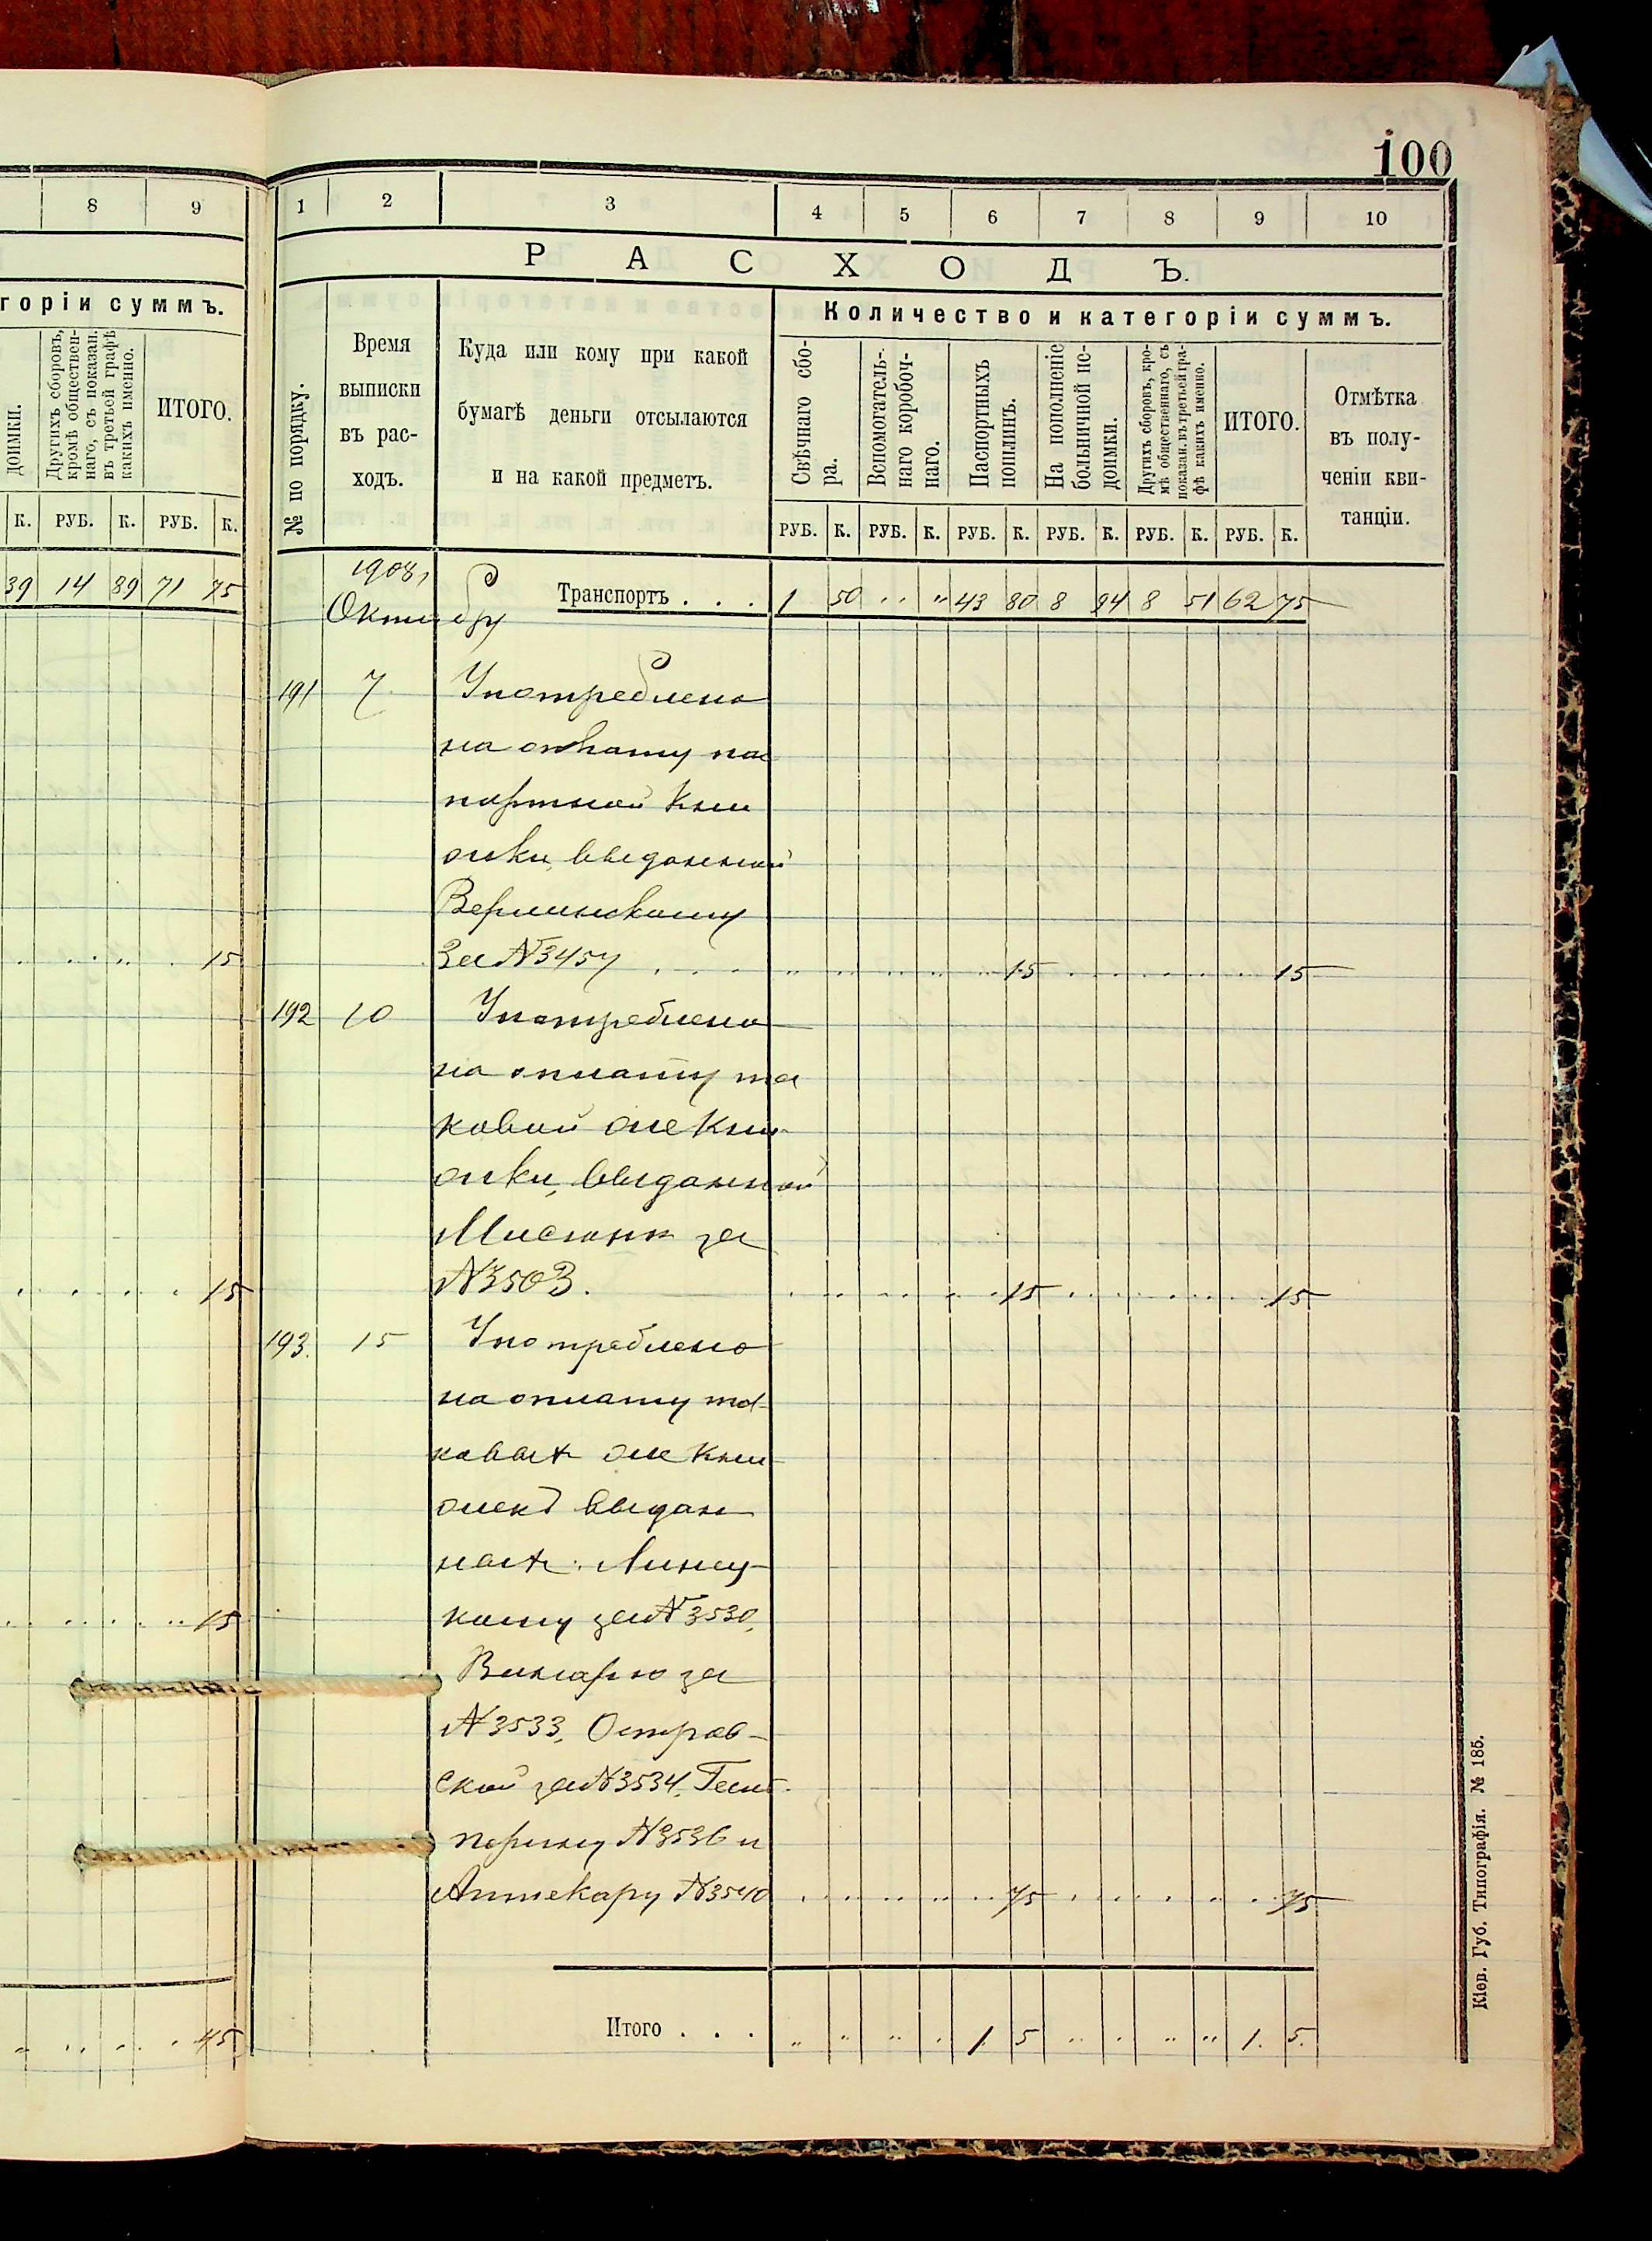 100
8 9
горіи суммъ.
доимки.
Другихъ сборовъ, кромѣ обществен-наго, съ показан. въ третьей графѣ какихъ именно.
ИТОГО.
К. РУБ. К. РУБ. К.
39 14 89 71 75
15
15
15
45
1 2 3 4 5 6 7 8 9 10
РАСХОДЪ.
№ по порядку.
Время
выписки
въ рас-
ходъ.
Куда или кому при какой
бумагѣ деньги отсылаются
и на какой предметъ.
Количество и категоріи суммъ.
Свѣчнаго сбо-
ра.
Вспомогатель-
наго коробоч-
наго.
Паспортныхъ
пошлинъ.
На пополненіе
больничной не-
доимки.
Другихъ сборовъ, кро-
мѣ общественнаго, съ
показан. въ третьей гра-
фѣ какихъ именно.
ИТОГО.
Отмѣтка
въ полу-
ченіи кви-
танціи.
РУБ. К. РУБ. К. РУБ. К. РУБ. К. РУБ. К. РУБ. К.
1908,
Октябрь
Транспортъ . . . 1 50 " " 43 80 8 94 8 51 62 75
191 7 Употреблено
на оплату пас
портной кни
жки, выданной
За № 3457 15 15
192 10 Употреблено
на оплату та
ковой же кни
жки, выданной
за
№ 3503. 15 15
193. 15 Употреблено
на оплату та-
ковых же кни
жекъ выдан
ных:
кому за № 3530,
Винарю за
№ 3533, Остров-
ской за № 3534,
№ 3536 и
Аптекару № 3540 75 75
Итого . . . " " " . 1. 5 " . " " 1. 5.
Кіев. Губ. Типографія. № 185.